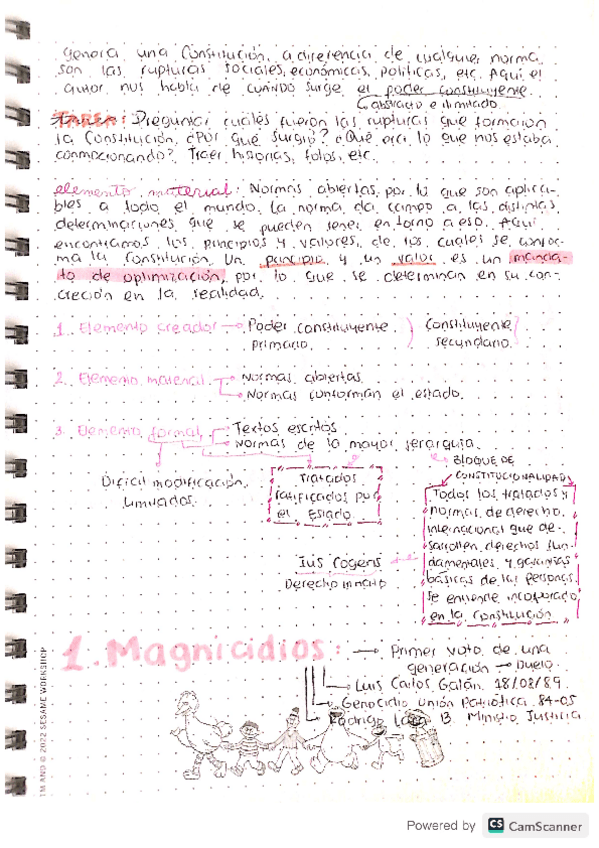 genera una Constitución, a diferencia de cualquier norma
son las rupturas sociales, económicas, políticas, etc. Aquí el
autor nos habla de cuándo surge el poder constituyente.
↳ abstracto e ilimitado.
TAREA: Preguntar cuáles fueron las rupturas que formaron
la Constitución. ¿Por qué surgió? ¿Qué era lo que nos estaba
conmocionando? Traer historias, fotos, etc.
elemento material: Normas abiertas, por lo que son aplica-
bles a todo el mundo. La norma da campo a las distintas
determinaciones que se pueden tener en torno a eso. Aquí
encontramos los principios y valores, de los cuales se confor-
ma la constitución. Un principio y un valor es un manda-
to de optimización, por lo que se determinan en su con-
creción en la realidad.
1. Elemento creador → Poder constituyente primario. Constituyente secundario.
2. Elemento material → Normas abiertas
→ Normas conforman el estado.
3. Elemento formal → Textos escritos
→ Normas de la mayor jerarquía.
Difícil modificación
Limitados.
Tratados
ratificados por
el Estado.
BLOQUE DE
CONSTITUCIONALIDAD
Todos los tratados y
normas de derecho
internacional que de-
sarrollen derechos fun-
damentales y garantías
básicas de las personas
se entiende incorporado
en la constitución
Ius Cogens
Derecho innato
1. Magnicidios: → Primer voto de una
generación → Duelo.
→ Luis Carlos Galán. 18/08/89.
→ Genocidio Unión Patriótica 84-05
→ Rodrigo Lara B Ministro Justicia
TM AND © 2022 SESAME WORKSHOP
Powered by CS CamScanner